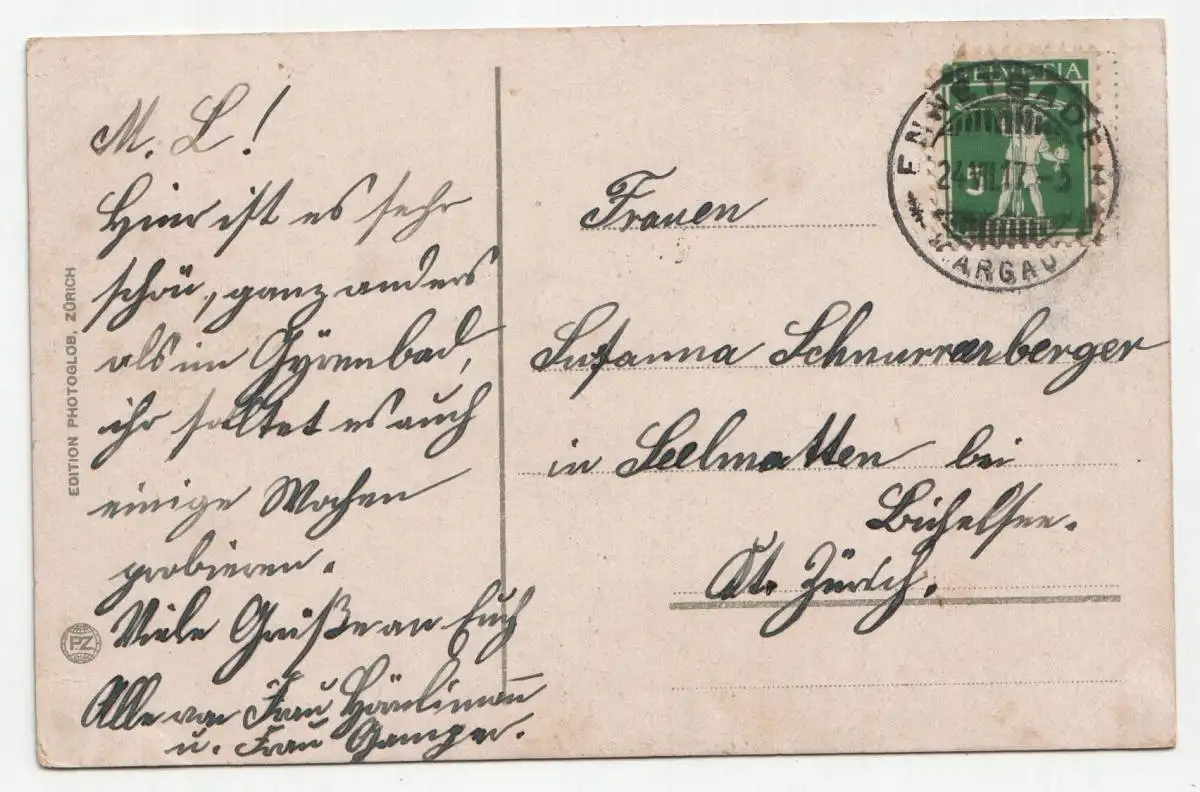 M. L!
Hier ist es sehr
schön, ganz anders
als im Gyrenbad,
ihr solltet es auch
einige Wochen
probieren.
Viele Grüße an Euch
Alle von Frau Hürlimann
u. Frau Gamper.
EDITION PHOTOGLOB, ZÜRICH
PZ
HELVETIA
5
ENNETBADEN
24.VII.17.-5
(AARGAU)
Frauen
Susanna Schnurrenberger
in Seelmatten bei
Bichelsee.
Kt. Zürich.